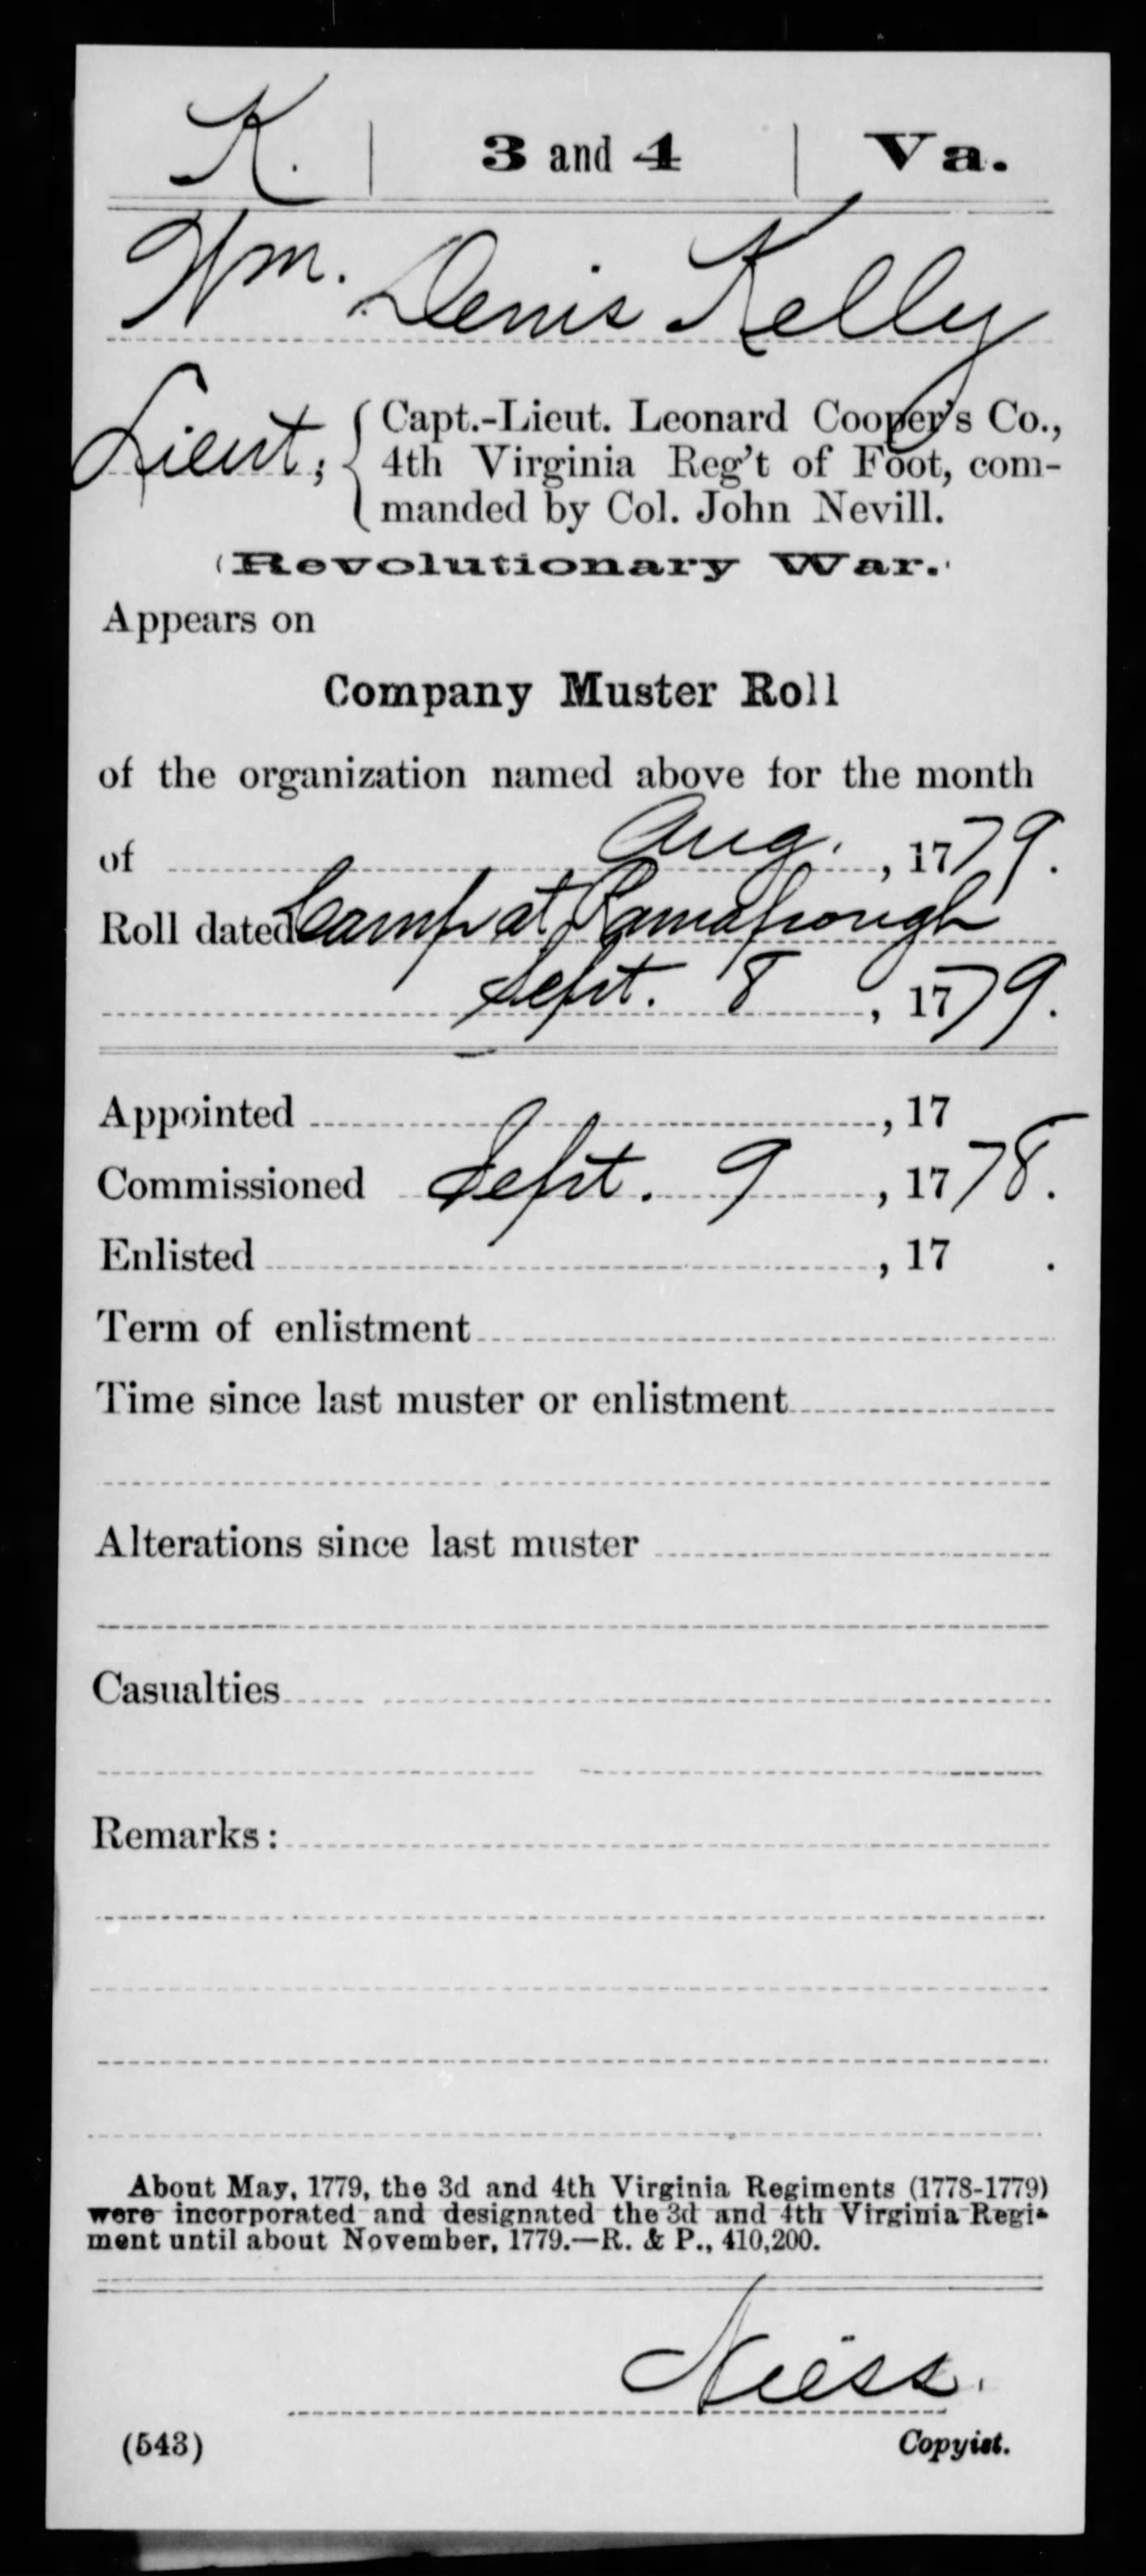 K. | 3 and 4 | Va.
Wm. Denis Kelly
Lieut, { Capt.-Lieut. Leonard Cooper's Co.,
4th Virginia Reg't of Foot, com-
manded by Col. John Nevill.
(Revolutionary War.)
Appears on
Company Muster Roll
of the organization named above for the month
of Aug., 1779.
Roll dated Camp at Ramapough
Sept. 8, 1779.
Appointed , 17
Commissioned Sept. 9, 1778.
Enlisted , 17 .
Term of enlistment
Time since last muster or enlistment
Alterations since last muster
Casualties
Remarks:
About May, 1779, the 3d and 4th Virginia Regiments (1778-1779)
were incorporated and designated the 3d and 4th Virginia Regi-
ment until about November, 1779.—R. & P., 410,200.
Niess.
(543) Copyist.